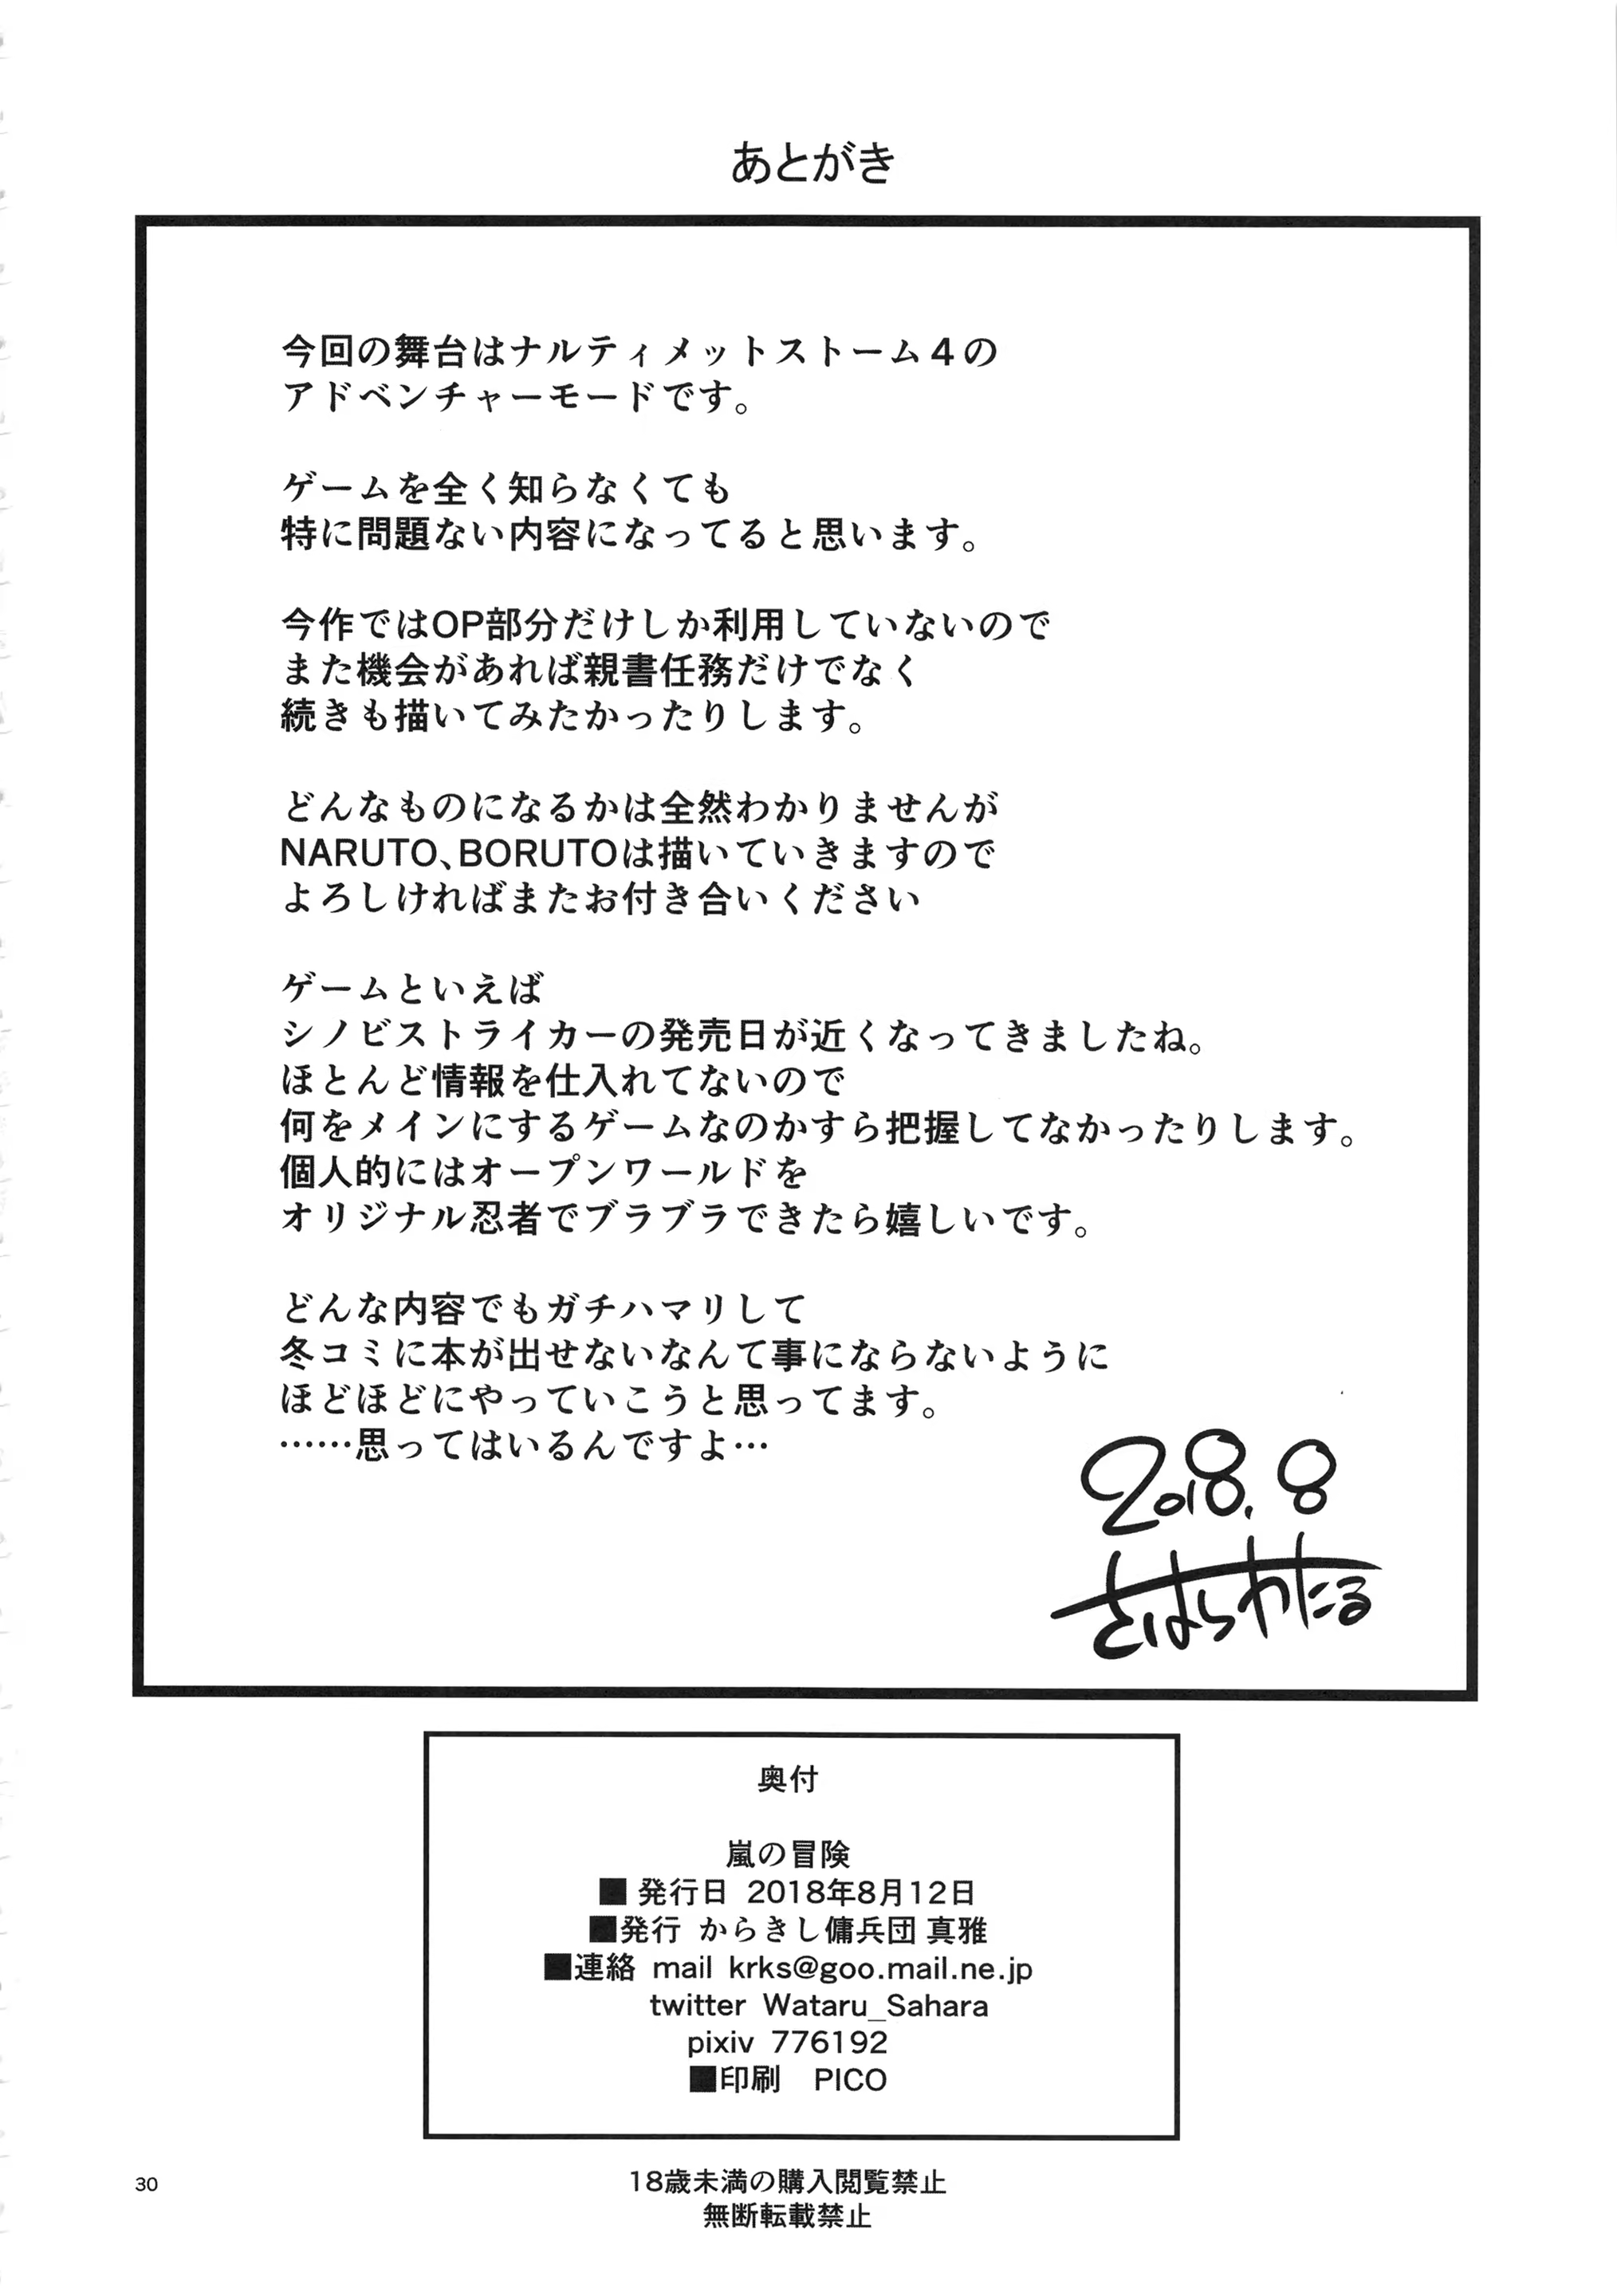 あとがき
今回の舞台はナルティメットストーム４の
アドベンチャーモードです。
ゲームを全く知らなくても
特に問題ない内容になってると思います。
今作ではOP部分だけしか利用していないので
また機会があれば親書任務だけでなく
続きも描いてみたかったりします。
どんなものになるかは全然わかりませんが
NARUTO、BORUTOは描いていきますので
よろしければまたお付き合いください
ゲームといえば
シノビストライカーの発売日が近くなってきましたね。
ほとんど情報を仕入れてないので
何をメインにするゲームなのかすら把握してなかったりします。
個人的にはオープンワールドを
オリジナル忍者でブラブラできたら嬉しいです。
どんな内容でもガチハマリして
冬コミに本が出せないなんて事にならないように
ほどほどにやっていこうと思ってます。
……思ってはいるんですよ…
2018.8
さはらわたる
奥付
嵐の冒険
■ 発行日 2018年8月12日
■発行 からきし傭兵団 真雅
■連絡 mail krks@goo.mail.ne.jp
twitter Wataru_Sahara
pixiv 776192
■印刷　PICO
18歳未満の購入閲覧禁止
無断転載禁止
30